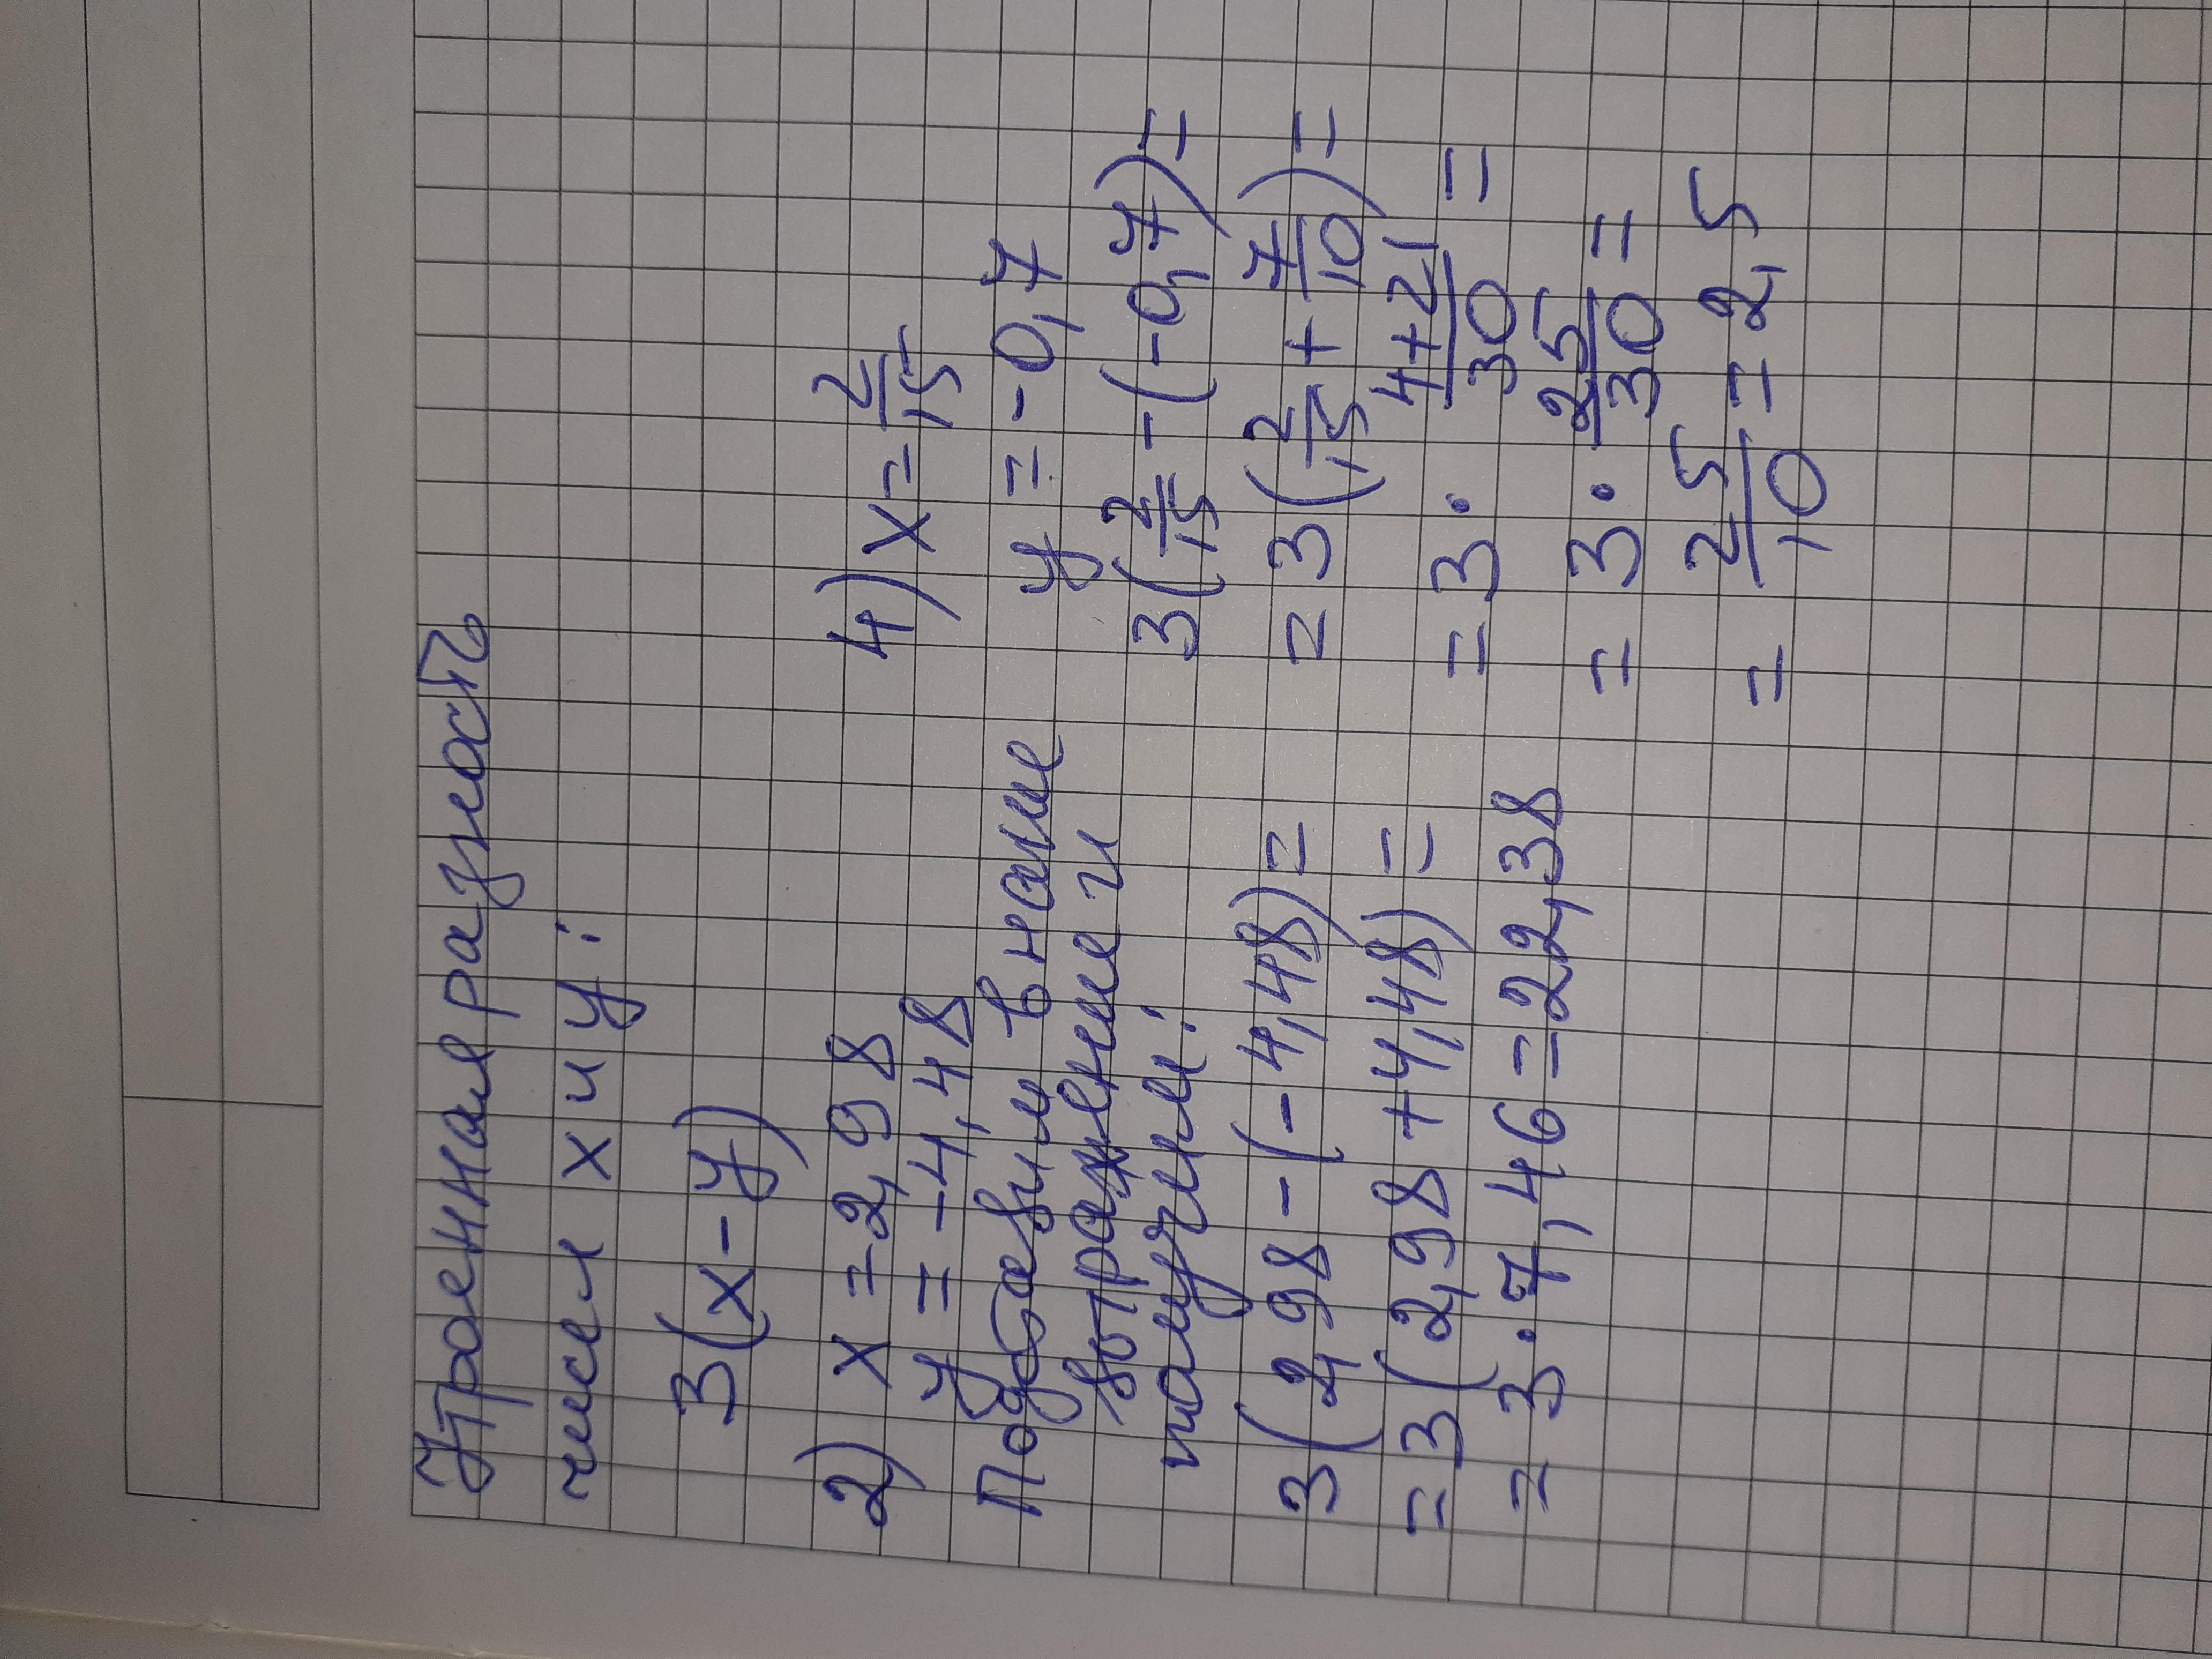 Утроенная разность
чисел х и у:
3(х-у)
2) х=2,98
у=-4,48
Подставим в наше
выражение и
получим:
3(2,98-(-4,48)=
=3(2,98+4,48)=
=3·7,46=22,38
4) х=2/15
у=-0,7
3(2/15-(-0,7)=
=3(2/15+7/10)=
=3·(4+21)/30=
=3·25/30=
=25/10=2,5